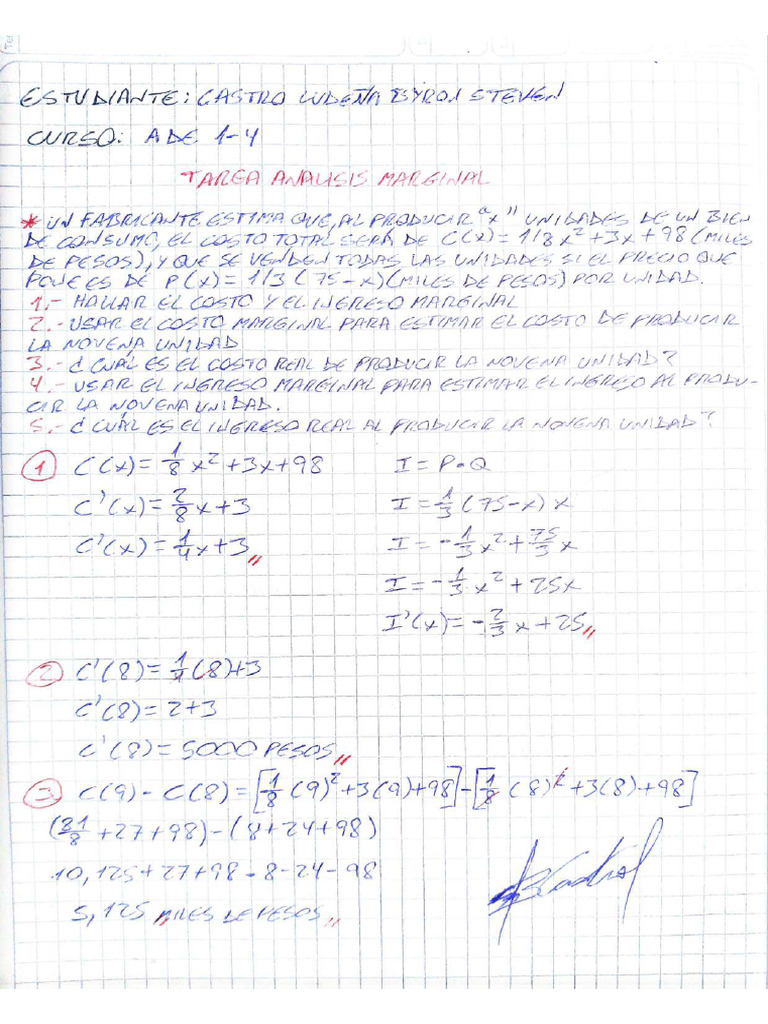 ESTUDIANTE: CASTRO LUDEÑA BYRON STEVEN
CURSO: ADE 1-4
TAREA ANALISIS MARGINAL
* UN FABRICANTE ESTIMA QUE, AL PRODUCIR "x" UNIDADES DE UN BIEN
DE CONSUMO, EL COSTO TOTAL SERÁ DE C(x) = 1/8x² + 3x + 98 (MILES
DE PESOS), Y QUE SE VENDEN TODAS LAS UNIDADES SI EL PRECIO QUE
PONE ES DE P(x) = 1/3 (75-x) (MILES DE PESOS) POR UNIDAD.
1.- HALLAR EL COSTO Y EL INGRESO MARGINAL
2.- USAR EL COSTO MARGINAL PARA ESTIMAR EL COSTO DE PRODUCIR
LA NOVENA UNIDAD
3.- ¿CUÁL ES EL COSTO REAL DE PRODUCIR LA NOVENA UNIDAD?
4.- USAR EL INGRESO MARGINAL PARA ESTIMAR EL INGRESO AL PRODU-
CIR LA NOVENA UNIDAD.
5.- ¿CUÁL ES EL INGRESO REAL AL PRODUCIR LA NOVENA UNIDAD?
① C(x) = 1/8 x² + 3x + 98
C'(x) = 2/8 x + 3
C'(x) = 1/4 x + 3 //
I = P•Q
I = 1/3 (75-x) x
I = -1/3 x² + 75/3 x
I = -1/3 x² + 25x
I'(x) = -2/3 x + 25 //
② C'(8) = 1/4 (8) + 3
C'(8) = 2 + 3
C'(8) = 5000 PESOS //
③ C(9) - C(8) = [1/8 (9)² + 3(9) + 98] - [1/8 (8)² + 3(8) + 98]
(81/8 + 27 + 98) - (8 + 24 + 98)
10,125 + 27 + 98 - 8 - 24 - 98
5,125 MILES DE PESOS //